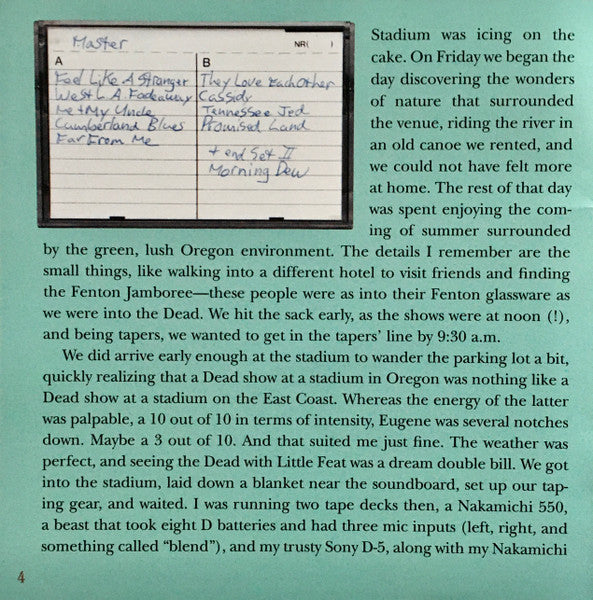 Master
NR( )
A
Feel Like A Stranger
West L.A. Fadeaway
Me & My Uncle
Cumberland Blues
Far From Me
B
They Love Each Other
Cassidy
Tennessee Jed
Promised Land
+ end Set II
Morning Dew
Stadium was icing on the
cake. On Friday we began the
day discovering the wonders
of nature that surrounded
the venue, riding the river in
an old canoe we rented, and
we could not have felt more
at home. The rest of that day
was spent enjoying the com-
ing of summer surrounded
by the green, lush Oregon environment. The details I remember are the
small things, like walking into a different hotel to visit friends and finding
the Fenton Jamboree—these people were as into their Fenton glassware as
we were into the Dead. We hit the sack early, as the shows were at noon (!),
and being tapers, we wanted to get in the tapers’ line by 9:30 a.m.
We did arrive early enough at the stadium to wander the parking lot a bit,
quickly realizing that a Dead show at a stadium in Oregon was nothing like a
Dead show at a stadium on the East Coast. Whereas the energy of the latter
was palpable, a 10 out of 10 in terms of intensity, Eugene was several notches
down. Maybe a 3 out of 10. And that suited me just fine. The weather was
perfect, and seeing the Dead with Little Feat was a dream double bill. We got
into the stadium, laid down a blanket near the soundboard, set up our tap-
ing gear, and waited. I was running two tape decks then, a Nakamichi 550,
a beast that took eight D batteries and had three mic inputs (left, right, and
something called “blend”), and my trusty Sony D-5, along with my Nakamichi
4